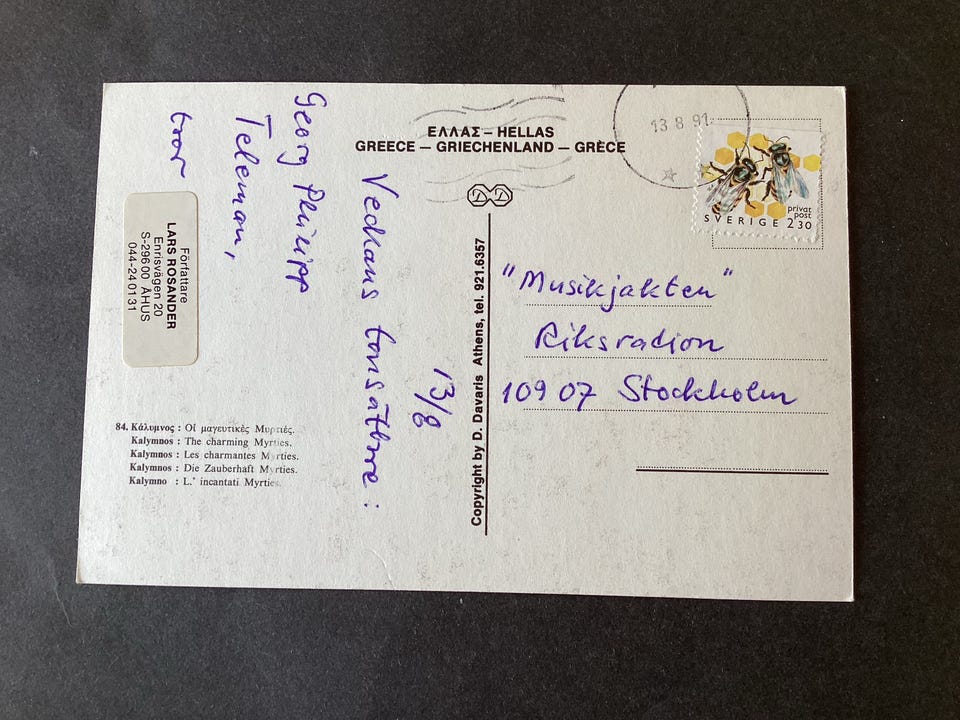 ΕΛΛΑΣ – HELLAS
GREECE – GRIECHENLAND – GRÈCE
13 8 91
privat
post
SVERIGE 2 30
13/8
Veckans tonsättare:
Georg Philipp
Teleman,
tror
Författare
LARS ROSANDER
Enrisvägen 20
S-296 00 ÅHUS
044-24 01 31
84. Κάλυμνος : Οἱ μαγευτικὲς Μυρτιές.
Kalymnos : The charming Myrties.
Kalymnos : Les charmantes Myrties.
Kalymnos : Die Zauberhaft Myrties.
Kalymno : L.' incantati Myrties
Copyright by D. Davaris Athens, tel. 921.6357
"Musikjakten"
Riksradion
109 07 Stockholm